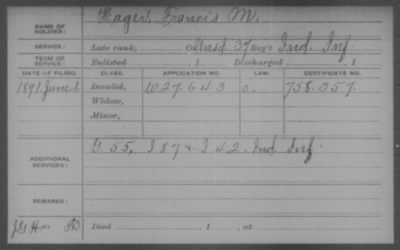 NAME OF SOLDIER: Hager, Francis M.
SERVICE: Late rank, Reg't Ind. Inf.
TERM OF SERVICE: Enlisted , 1 Discharged , 1
DATE OF FILING. CLASS. APPLICATION NO. LAW. CERTIFICATE NO.
1891 June 1. Invalid, 1027643 758.357
Widow,
Minor,
ADDITIONAL SERVICES: G. 55, I 87 & I 42 - Ind. Inf.
REMARKS:
Died , 1 , at